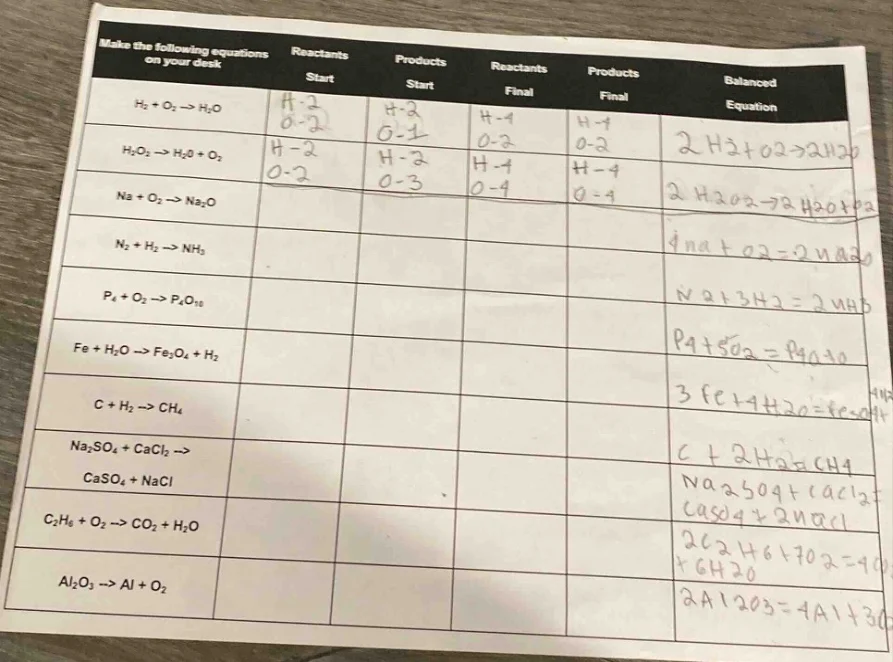 Make the following equations on your desk
Reactants Start
Products Start
Reactants Final
Products Final
Balanced Equation
H₂ + O₂ --> H₂O
H-2
O-2
H-2
O-1
H-4
O-2
H-4
O-2
2 H2+O2→2H2O
H₂O₂ --> H₂O + O₂
H-2
O-2
H-2
O-3
H-4
O-4
H-4
O-4
2 H2O2→2 H2O+O2
Na + O₂ --> Na₂O
4na + O2=2na2O
N₂ + H₂ --> NH₃
N2+3H2=2NH3
P₄ + O₂ --> P₄O₁₀
P4+5O2=P4O10
Fe + H₂O --> Fe₃O₄ + H₂
3 Fe+4H2O=Fe3O4+
4H2
C + H₂ --> CH₄
C + 2H2=CH4
Na₂SO₄ + CaCl₂ -->
CaSO₄ + NaCl
Na2SO4+CaCl2=
CaSO4+2nacl
C₂H₆ + O₂ --> CO₂ + H₂O
2C2H6+7O2=4CO
+6H2O
Al₂O₃ --> Al + O₂
2Al2O3=4Al+3O